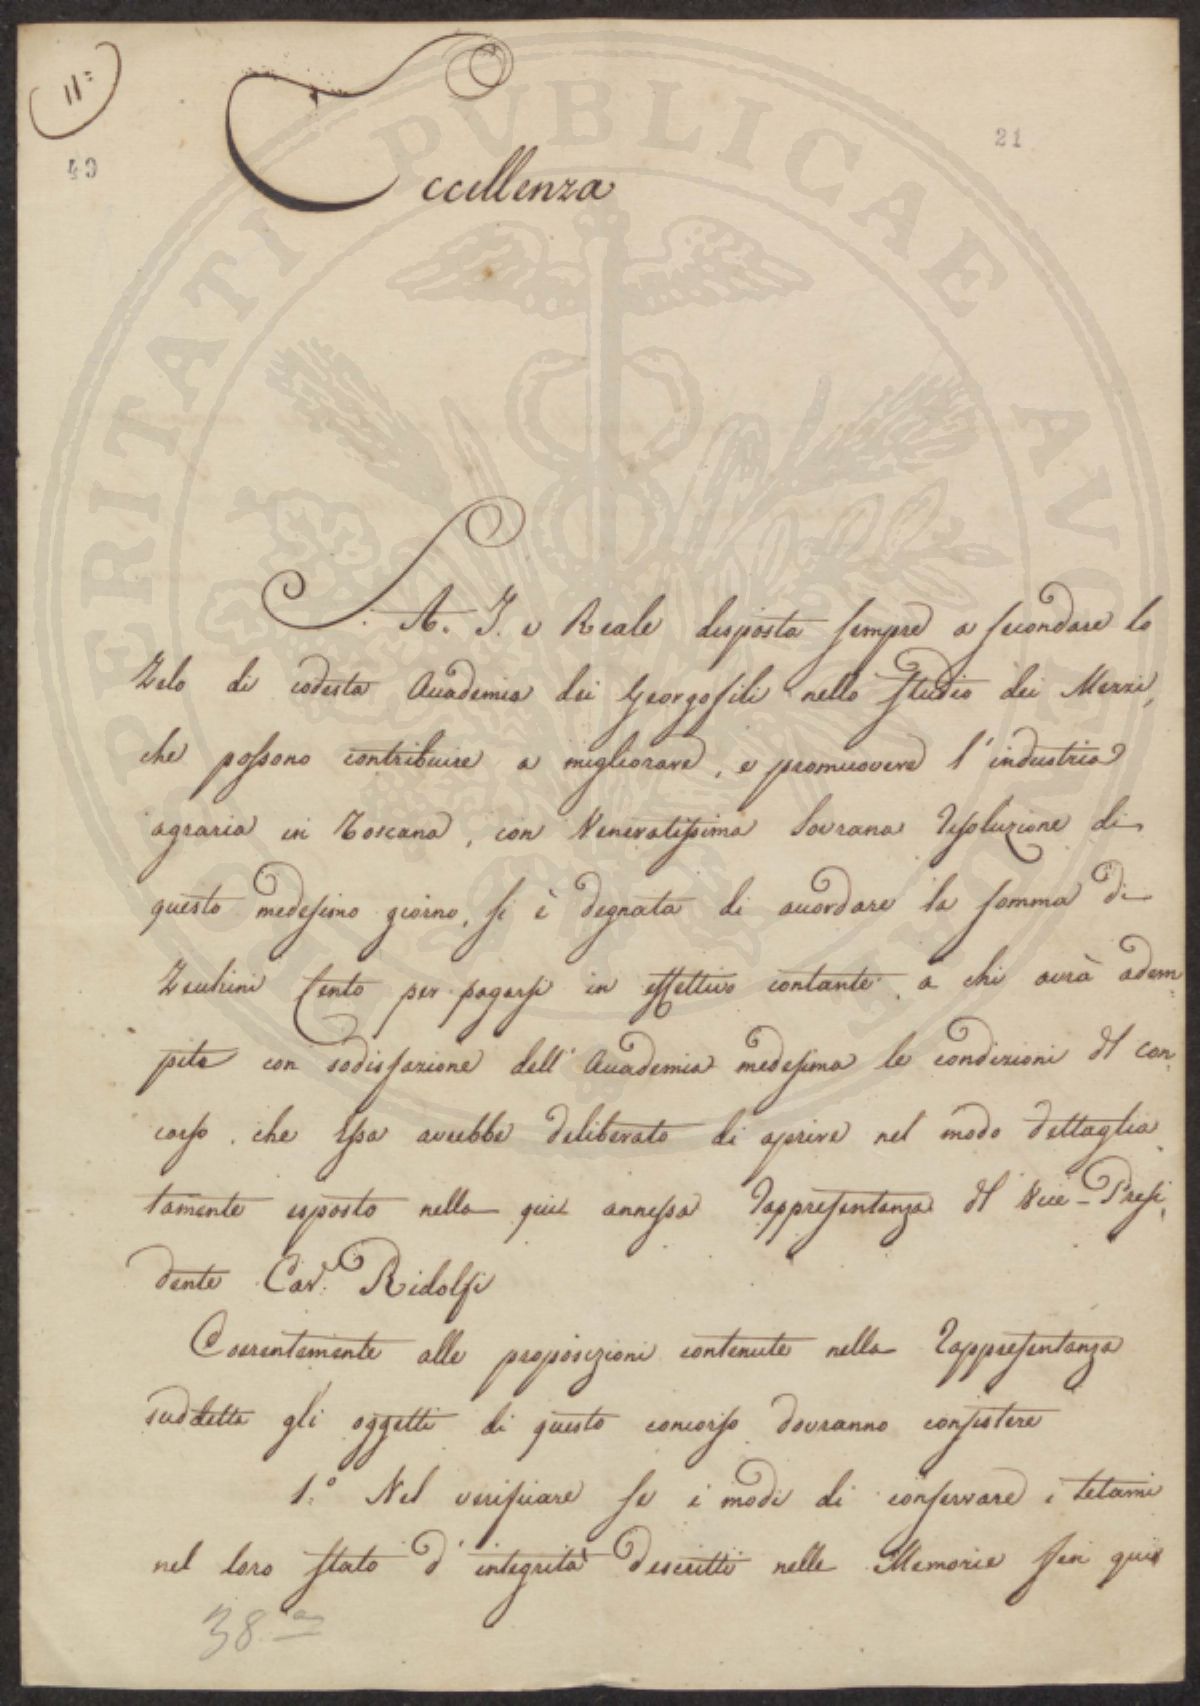 11:
49
21
Eccellenza
S. A. I. e Reale disposta sempre a secondare lo
Zelo di codesta Accademia dei Georgofili nello studio dei Mezzi,
che possono contribuire a migliorare, e promuovere l'industria
agraria in Toscana, con Veneratissima Sovrana Resoluzione di
questo medesimo giorno, si è degnata di accordare la somma di
Zecchini Cento per pagarsi in effettivo contante a chi avrà adem
pito con sodisfazione dell'Accademia medesima le condizioni del con
corso, che Essa avrebbe deliberato di aprire nel modo dettaglia
tamente esposto nella qui annessa Rappresentanza del Vice-Presi
dente Cav.e Ridolfi
Coerentemente alle proposizioni contenute nella Rappresentanza
suddetta gli oggetti di questo concorso dovranno consistere
1.° Nel verificare se i modi di conservare i letami
nel loro stato d'integrità descritti nelle Memorie fin qui
38.a
PROSPERITATI PVBLICAE AVGENDAE